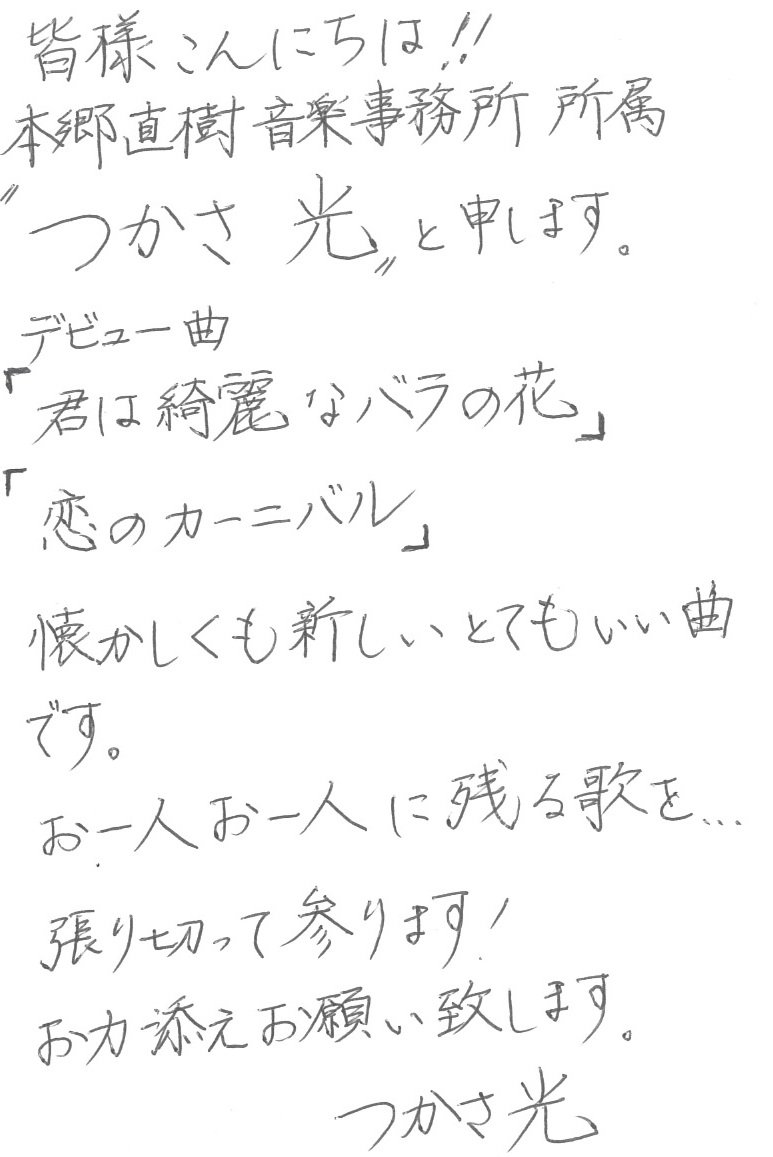 皆様こんにちは!!
本郷直樹音楽事務所 所属
〝つかさ 光〟と申します。
デビュー曲
「君は綺麗なバラの花」
「恋のカーニバル」
懐かしくも新しいとてもいい曲
です。
お一人お一人に残る歌を...
張り切って参ります!
お力添えお願い致します。
つかさ光